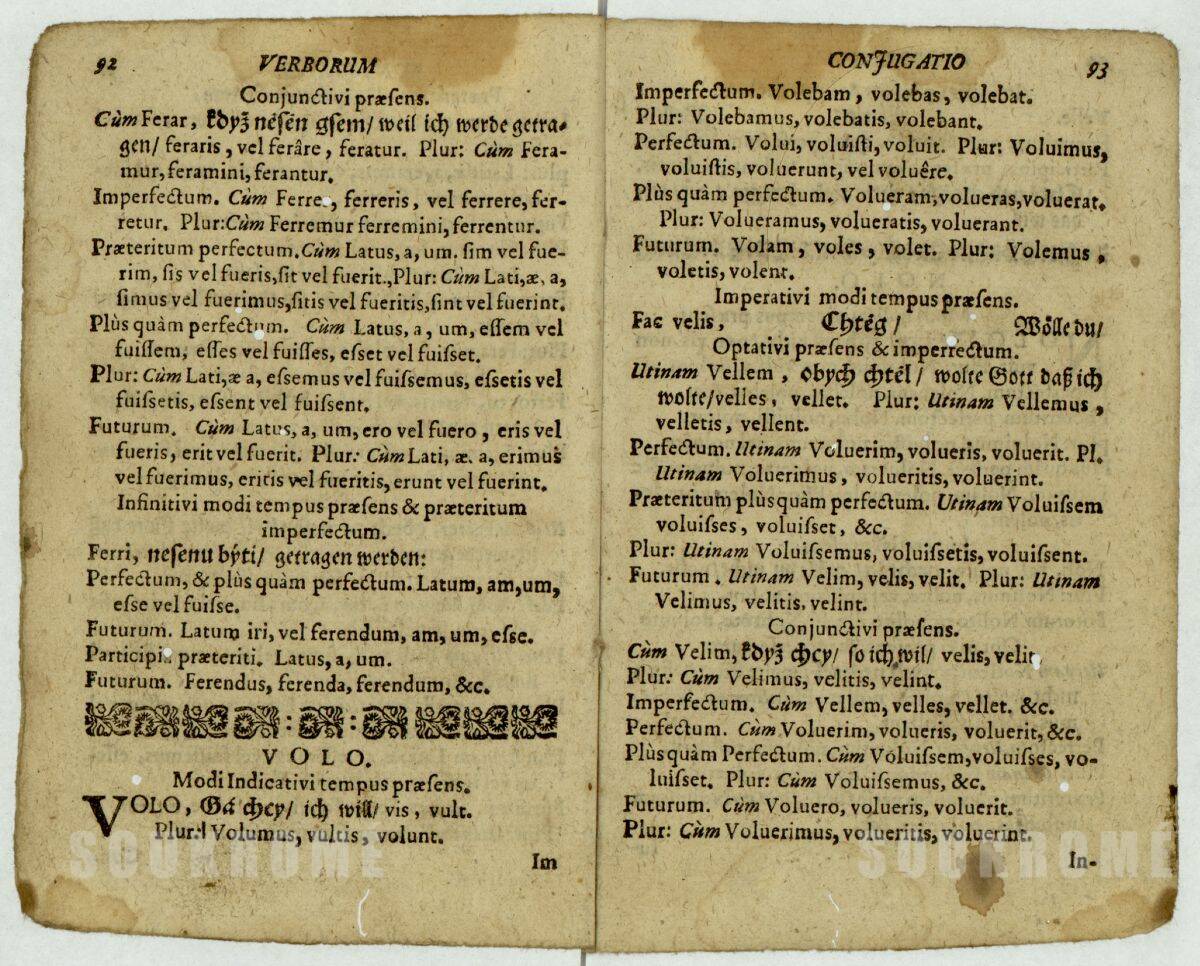 92 VERBORUM
Conjunctivi præsens.
Cùm Ferar, když nêsên gsem/ weil ich werde getra-
gen/ feraris, vel ferâre, feratur. Plur: Cùm Fera-
mur, feramini, ferantur.
Imperfectum. Cùm ferreris, vel ferrere, fer-
retur. Plur: Cùm Ferremur ferremini, ferrentur.
Præteritum perfectum. Cùm Latus, a, um. ſim vel fue-
rim, ſis vel fueris, ſit vel fuerit., Plur: Cùm Lati, æ, a,
ſimus vel fuerimus, ſitis vel fueritis, ſint vel fuerint.
Plùs quàm perfectum. Cùm Latus, a, um, eſſem vel
fuiſſem, eſſes vel fuiſſes, eſset vel fuiſset.
Plur: Cùm Lati, æ a, eſsemus vel fuiſsemus, eſsetis vel
fuiſsetis, eſsent vel fuiſsent.
Futurum. Cùm Latus, a, um, ero vel fuero, eris vel
fueris, erit vel fuerit. Plur: Cùm Lati, æ. a, erimus
vel fuerimus, eritis vel fueritis, erunt vel fuerint.
Infinitivi modi tempus præsens & præteritum
imperfectum.
Ferri, neſenu býti/ getragen werden:
Perfectum, & plùs quàm perfectum. Latum, am, um,
eſse vel fuiſse.
Futurum. Latum iri, vel ferendum, am, um, eſse.
Participii præteriti. Latus, a, um.
Futurum. Ferendus, ferenda, ferendum, &c.
VOLO.
Modi Indicativi tempus præsens.
VOLO, Gá chcy/ ich will/ vis, vult.
Plur: Volumus, vultis, volunt.
Im
CONJUGATIO 93
Imperfectum. Volebam, volebas, volebat.
Plur: Volebamus, volebatis, volebant.
Perfectum. Volui, voluiſti, voluit. Plur: Voluimus,
voluiſtis, voluerunt, vel voluêre.
Plùs quàm perfectum. Volueram, volueras, voluerat.
Plur: Volueramus, volueratis, voluerant.
Futurum. Volam, voles, volet. Plur: Volemus,
voletis, volent.
Imperativi modi tempus præsens.
Fac velis, Chtêg/ Wölle du/
Optativi præsens & imperrectum.
Utinam Vellem, obych chtêl/ wolte Gott daß ich
wolte/ velles, vellet. Plur: Utinam Vellemus,
velletis, vellent.
Perfectum. Utinam Voluerim, volueris, voluerit. Pl.
Utinam Voluerimus, volueritis, voluerint.
Præteritum plùs quàm perfectum. Utinam Voluiſsem
voluiſses, voluiſset, &c.
Plur: Utinam Voluiſsemus, voluiſsetis, voluiſsent.
Futurum. Utinam Velim, velis, velit. Plur: Utinam
Velimus, velitis, velint.
Conjunctivi præsens.
Cùm Velim, když chcy/ ſo ich wil/ velis, velit,
Plur: Cùm Velimus, velitis, velint.
Imperfectum. Cùm Vellem, velles, vellet. &c.
Perfectum. Cùm Voluerim, volueris, voluerit, &c.
Plùs quàm Perfectum. Cùm Voluiſsem, voluiſses, vo-
luiſset. Plur: Cùm Voluiſsemus, &c.
Futurum. Cùm Voluero, volueris, voluerit.
Plur: Cùm Voluerimus, volueritis, voluerint.
In-
SOUKROMÉ SOUKROMÉ